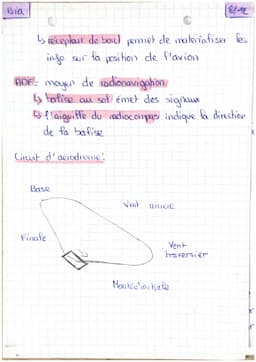 Bia
↳ récepteur de bord permet de matérialiser les
info sur la position de l'avion
ADF: moyen de radionavigation
↳ balise au sol émet des signaux
↳ l'aiguille du radiocompas indique la direction
de la balise
Circuit d'aérodrome:
Base
Vent arrière
Finale
Vent
traversier
Montée initiale